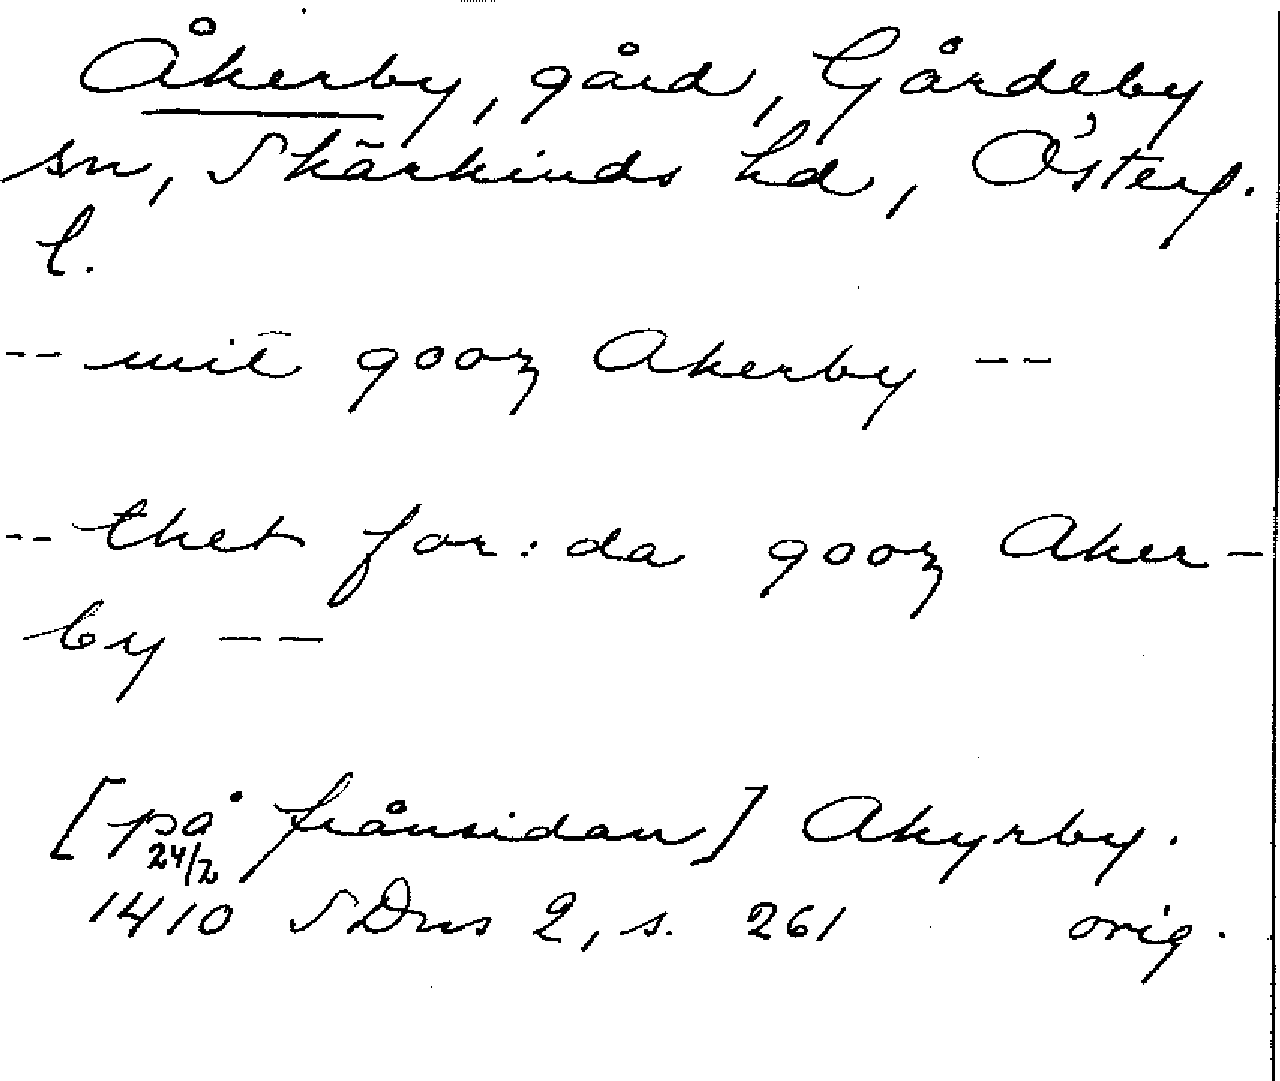 Åkerby, gård, Gårdeby
sn, Skärkinds hd, Österg.
l.
-- mit gooz Akerby --
-- thet for:da gooz Aker-
by --
[på frånsidan] Akyrby.
24/2
1410 SDns 2, s. 261 orig.